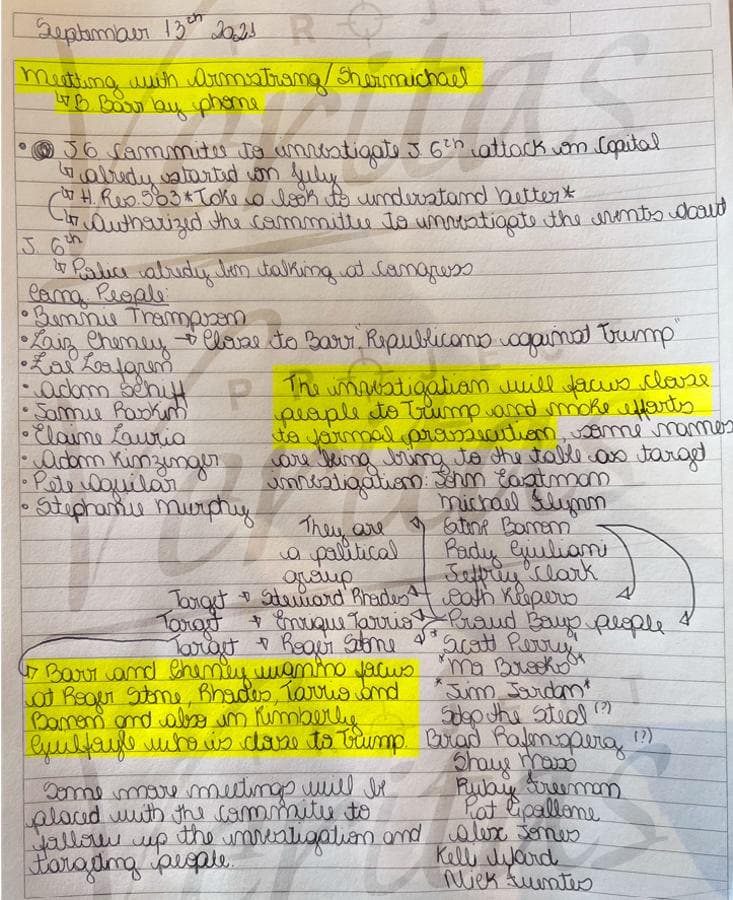 September 13th 2021
PROJECT
Veritas
Meeting with Armstrong/Shermichael
↳ B Barr by phone
• J6 Committee to investigate J. 6th attack on Capital
↳ alredy started on July
↳ H. Res. 503 *Take a look to understand better*
↳ Authorized the committee to investigate the events about
J. 6th
↳ Police alredy ben talking at Congress
Cong People:
• Bennie Trompson
• Laiz Cheney → Close to Barr "Republicans against Trump"
• Zoe Lofgren
• Adam Schiff
• Jamie Raskin
• Elaine Lauria
• Adam Kinzinger
• Pete Aguilar
• Stephanie Murphy
The investigation will focus close
people to Trump and make efforts
to formal prossecution, some names
are being bring to the table as target
investigation: John Eastman
Michael Flynn
They are
a political
group
Bannon
Rudy Giuliani
Jeffrey Clark
Oath Keepers
Proud Boys people
Target → Steward Rhodes
Target → Enrique Tarrio
Target → Roger Stone
*Scott Perry*
*Mo Brooks*
*Jim Jordan*
Stop the Steal (?)
Brad Rafensperg (?)
Shaye Moss
Ruby Freeman
Pat Cipollone
Alex Jones
Kelli Ward
Nick Fuentes
↳ Barr and Cheney focus
at Roger Stone, Rhodes, Tarrio and
Bannon and also in Kimberly
Guilfoyle who is close to Trump.
Some more meetings will be
placed with the committe to
follow up the investigation and
targeting people.
PROJECT
Veritas